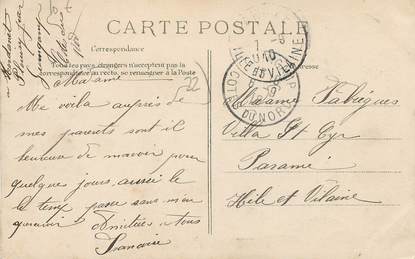 CARTE POSTALE
Correspondance
Tous les pays étrangers n'acceptent pas la
correspondance au recto, se renseigner à la Poste
Adresse
22
Madame
Me voila auprès de
mes parents sont il
heureux de mavoir pour
quelques jours aussi le
le temp passe sans man
Amitiée a tous
COTES DU NORD
Madame Fabrègues
Villa St Cyr
Paramé
Hile et Vilaine